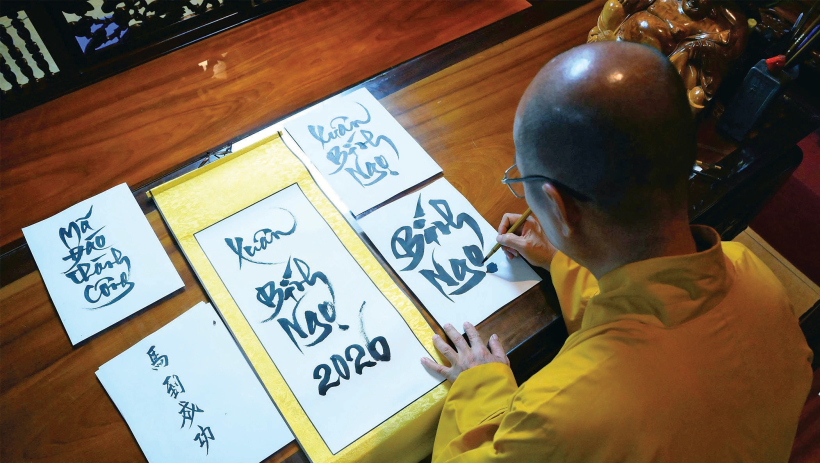 Mã
Đáo
Thành
Công
馬
到
成
功
Xuân
Bính
Ngọ
2026
Xuân
Bính
Ngọ
Bính
Ngọ